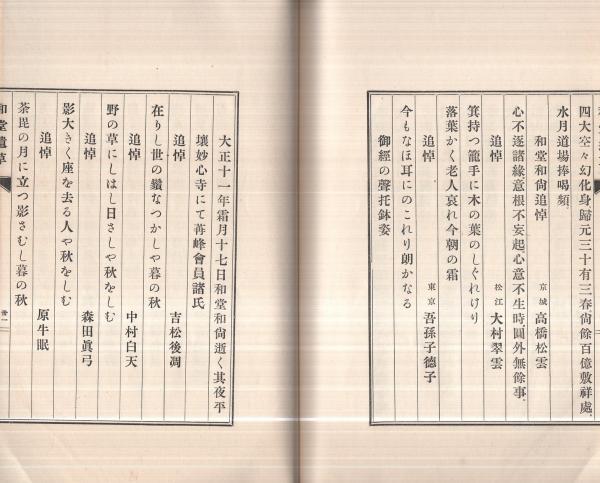 四大空々幻化身、歸元三十有三春、尙餘百億敷祥處、
水月道場捧喝頻、
和堂和尙追悼
京城 高橋松雲
心不逐諸緣意根不妄起心意不生時圓外無餘事、
追悼
松江 大村翠雲
箕持つ籠手に木の葉のしぐれけり
落葉かく老人哀れ今朝の霜
追悼
東京 吾孫子德子
今もなほ耳にのこれり朗かなる
御經の聲托鉢姿
大正十一年霜月十七日和堂和尙逝く其夜平
壤妙心寺にて苒峰會員諸氏
追悼
吉松後凋
在りし世の鬚なつかしや暮の秋
追悼
中村白天
野の草にしはし日さしや秋をしむ
追悼
森田眞弓
影大きく座を去る人や秋をしむ
追悼
原牛眠
荼毘の月に立つ影さむし暮の秋
和堂遺草
卅一